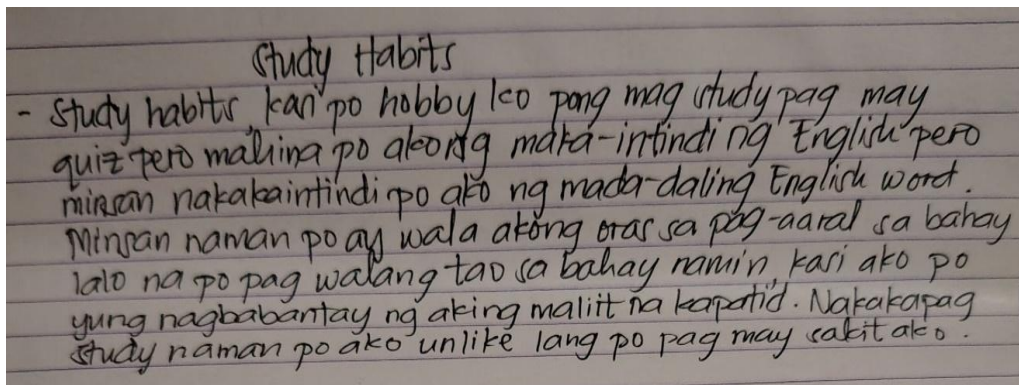 Study Habits
- Study habits, kasi po hobby ko pong mag study pag may
quiz pero mahina po akong maka-intindi ng English pero
minsan nakakaintindi po ako ng mada-daling English word.
Minsan naman po ay wala akong oras sa pag-aaral sa bahay
lalo na po pag walang tao sa bahay namin, kasi ako po
yung nagbabantay ng aking maliit na kapatid. Nakakapag
study naman po ako unlike lang po pag may sakit ako.